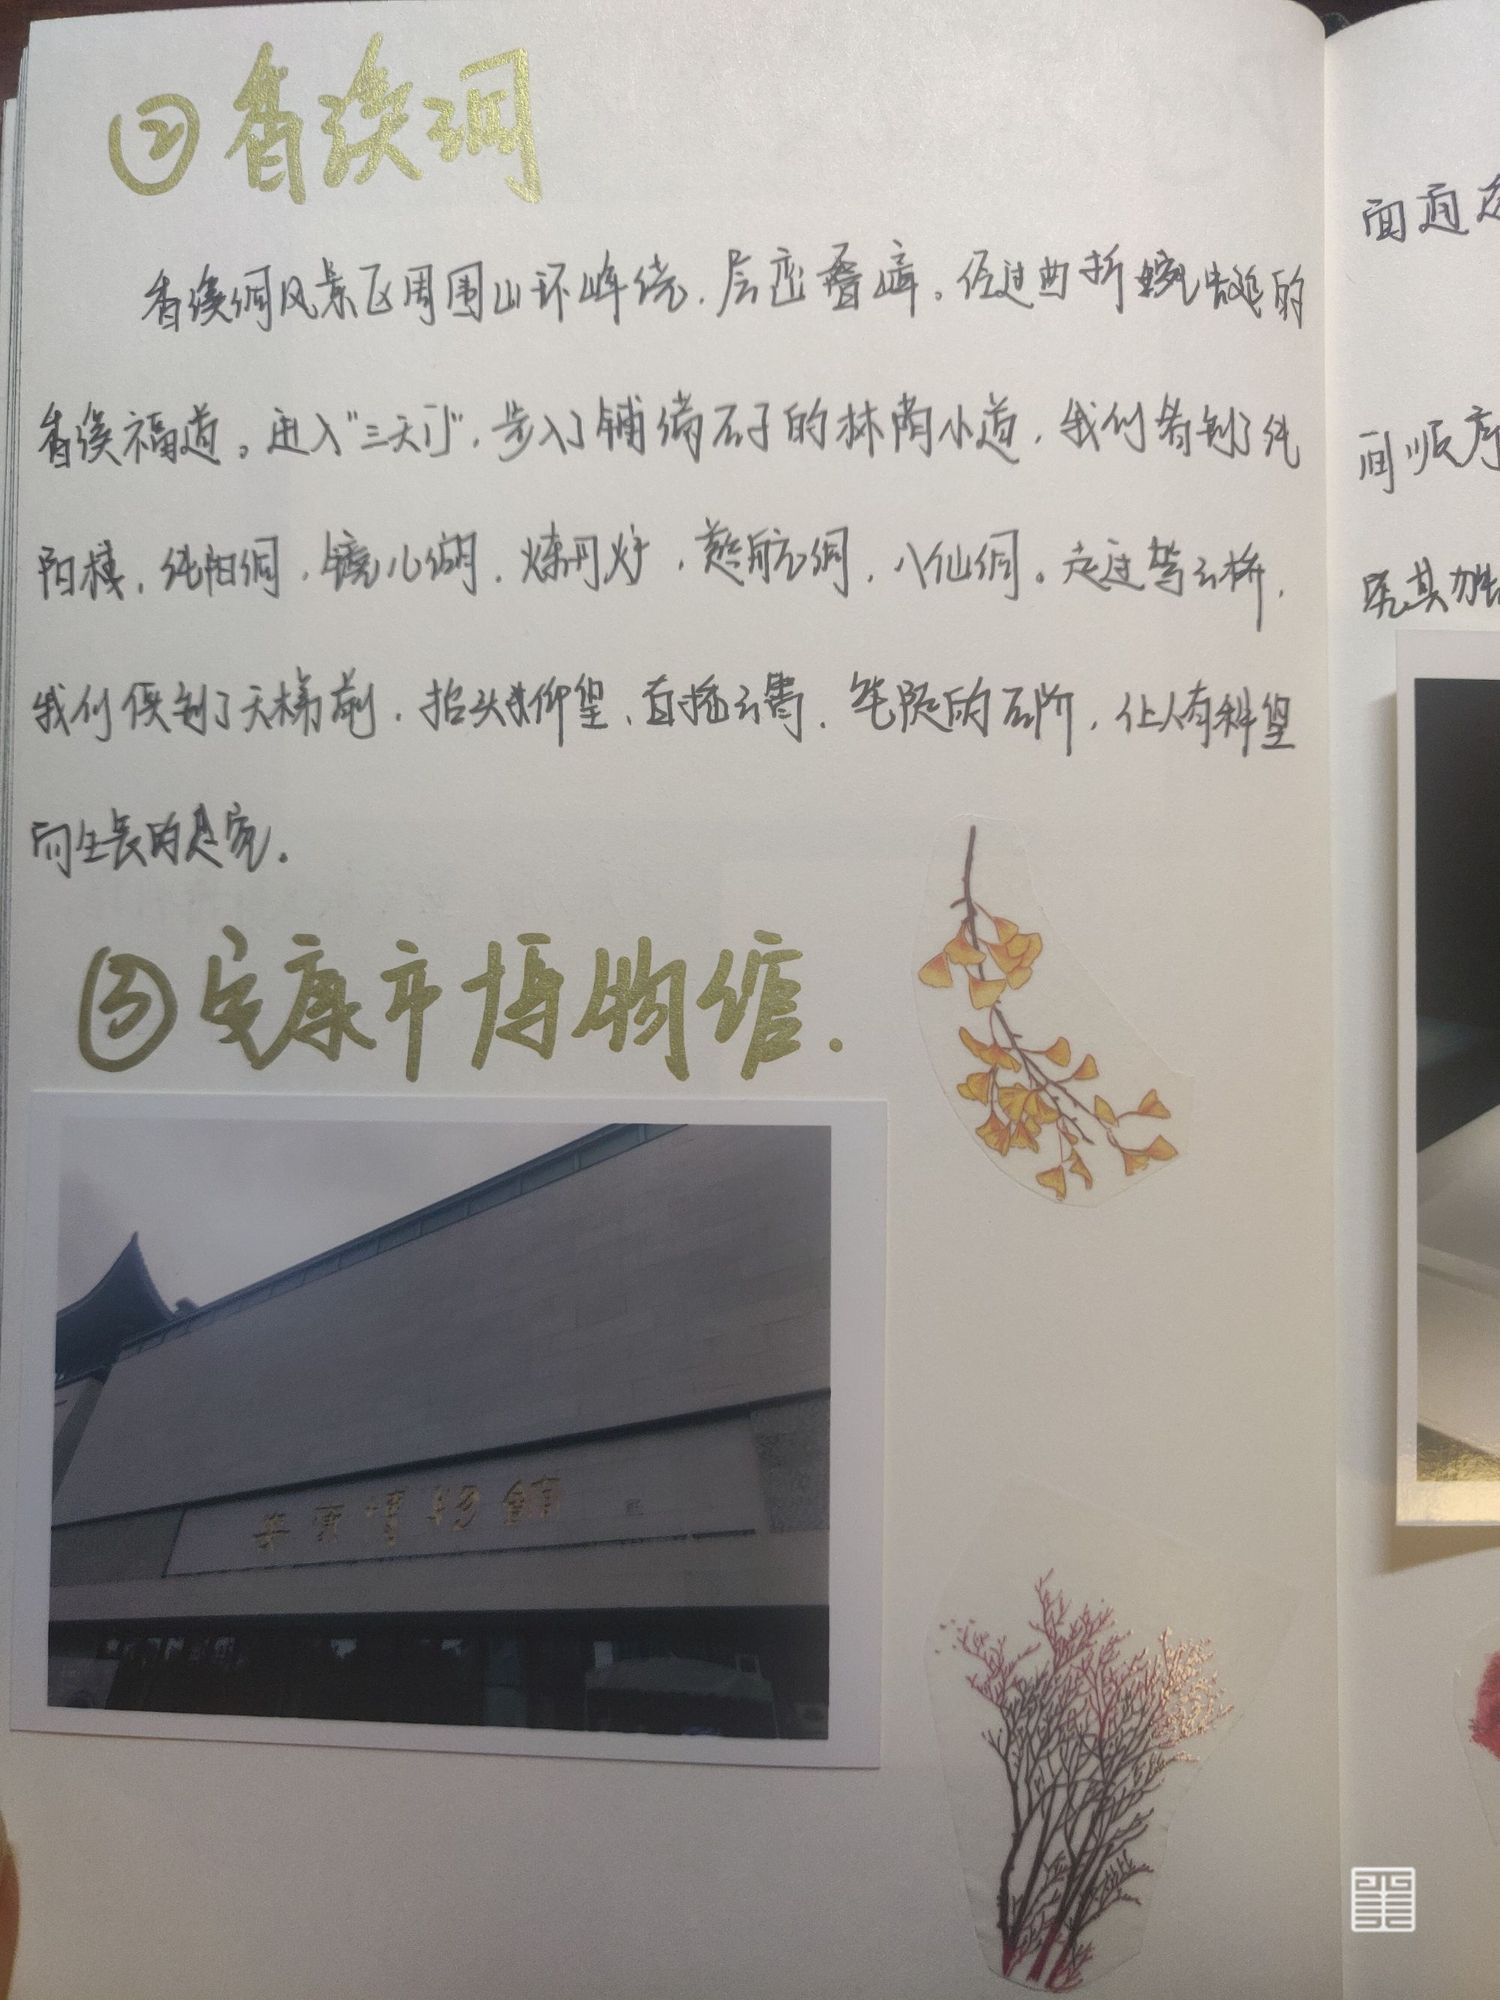 ②香溪洞
香溪洞风景区周围山环峰绕，层峦叠嶂。经过曲折蜿蜒的
香溪福道。进入"三天门"，步入了铺满石子的林荫小道，我们看到了纯
阳楼，纯阳洞，镜儿湖，炼丹炉，慈航洞，八仙洞。走过驾云桥，
我们便到了天梯前，抬头仰望，直插云霄、笔陡的石阶，让人有种望
而生畏的
③安康市博物馆.
安康博物馆
面面
间顺序